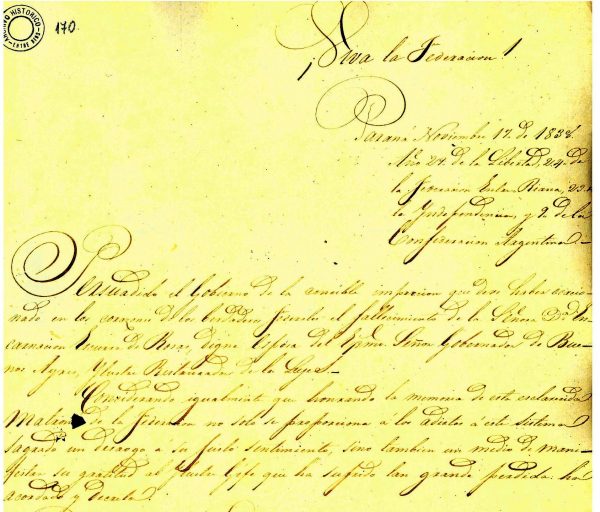 ARCHIVO HISTORICO
ENTRE RIOS
170
¡Viva la Federacion!
Parana Noviembre 17. de 1838.
Año 29. de la Libertad, 24. de
la Federacion Entre-Riana, 23. de
la Independencia, y 9. de la
Confederacion Argentina.
Persuadido el Gobierno de la sensible impresion que debe haber ocasio-
nado en los corazones de los verdaderos Federales el fallecimiento de la Señora Dª En-
carnacion Ezcurra de Rosas, digna Esposa del Exmo. Señor Gobernador de Bue-
nos Ayres, Ylustre Restaurador de las Leyes.
Considerando igualmente que honrando la memoria de esta esclarecida
Matrona de la Federacion no solo se proporciona á los adictos á este sistema
sagrado un desaogo á su justo sentimiento, sino tambien un medio de mani-
festar su gratitud al Gefe que ha sufrido tan grande perdida: ha
acordado y decreta.